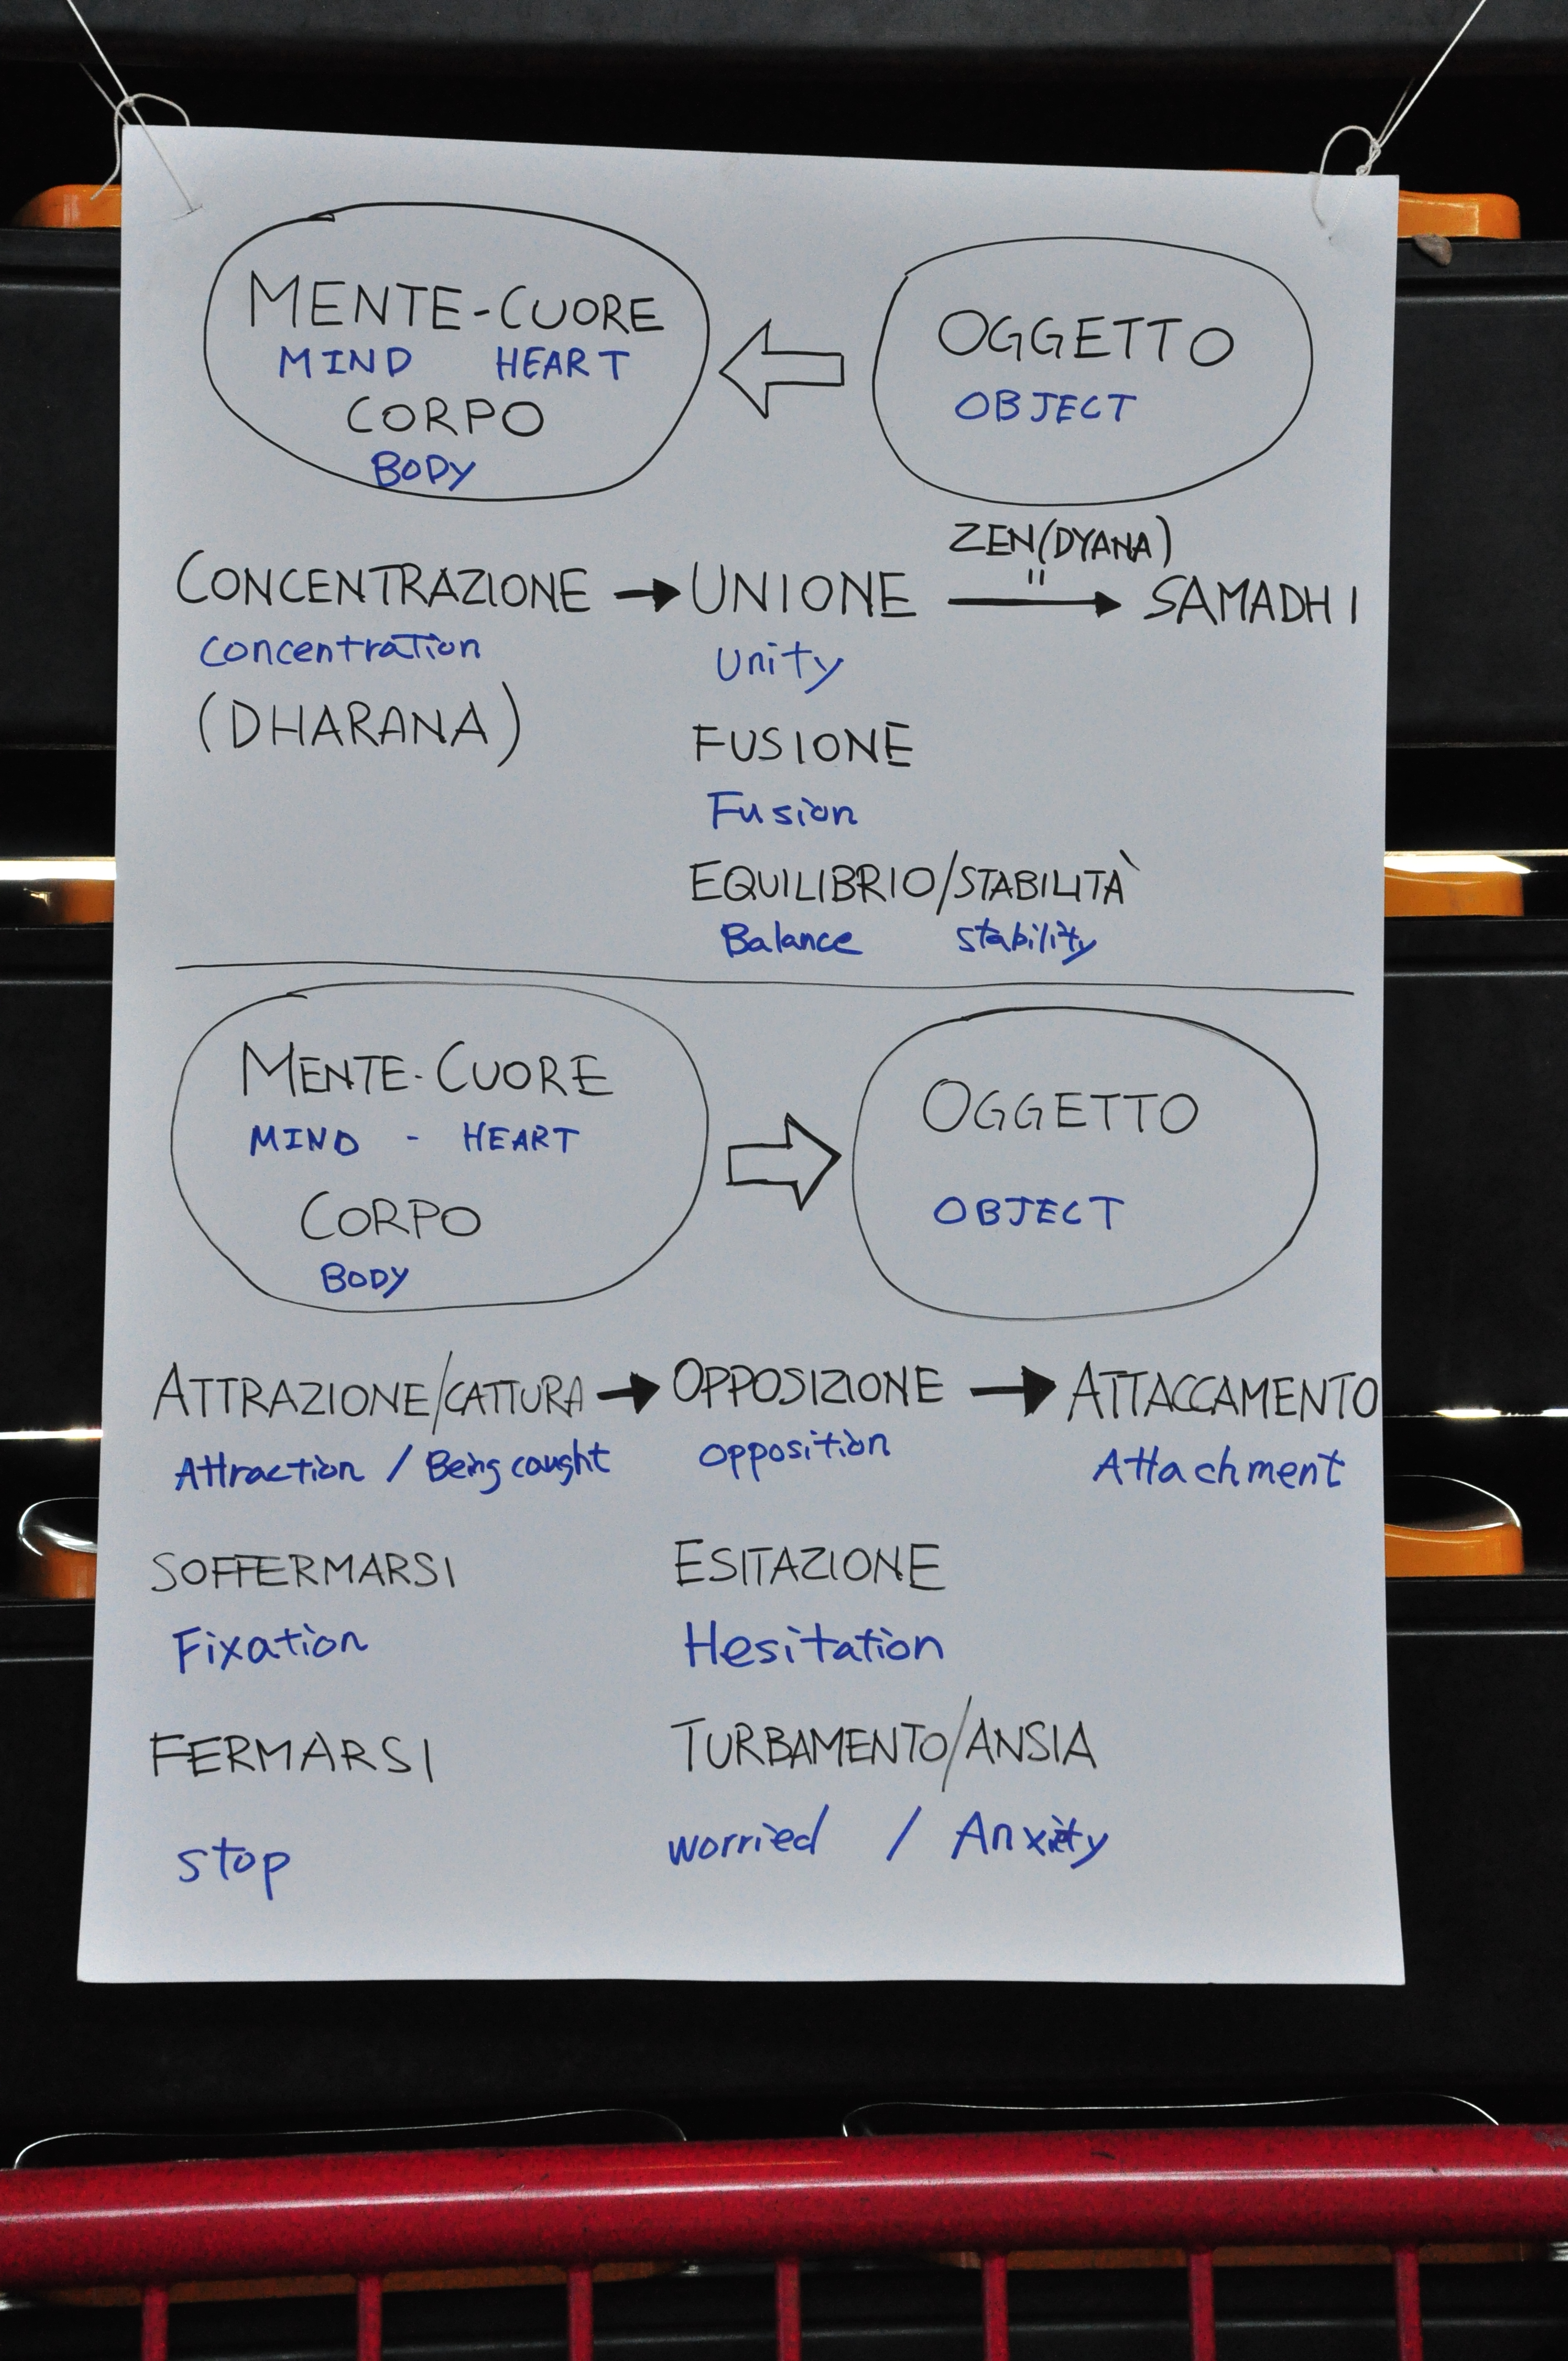 MENTE-CUORE
MIND HEART
CORPO
BODY
OGGETTO
OBJECT
ZEN (DYANA)
"
CONCENTRAZIONE → UNIONE → SAMADHI
Concentration Unity
(DHARANA)
FUSIONE
Fusion
EQUILIBRIO/STABILITÀ
Balance stability
MENTE-CUORE
MIND - HEART
CORPO
BODY
OGGETTO
OBJECT
ATTRAZIONE/CATTURA → OPPOSIZIONE → ATTACCAMENTO
Attraction / Being caught opposition Attachment
SOFFERMARSI ESITAZIONE
Fixation Hesitation
FERMARSI TURBAMENTO/ANSIA
stop worried / Anxiety